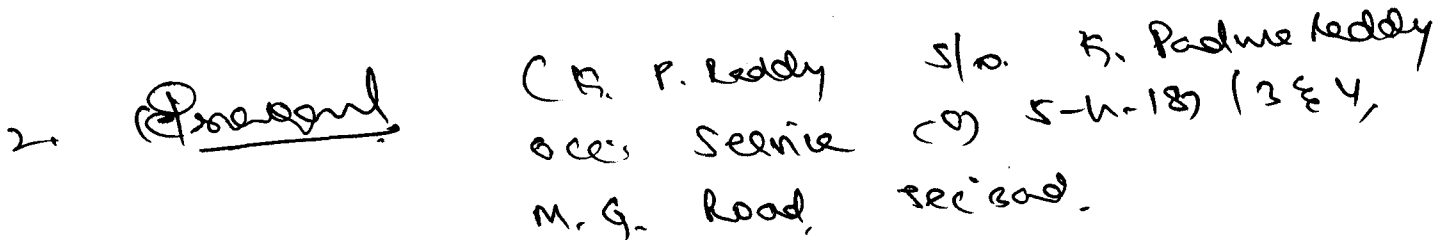 2. (K. P. Reddy S/o. K. Padma Reddy
Occ: Service (O) 5-4-187/3 & 4,
M. G. Road, Sec'bad.